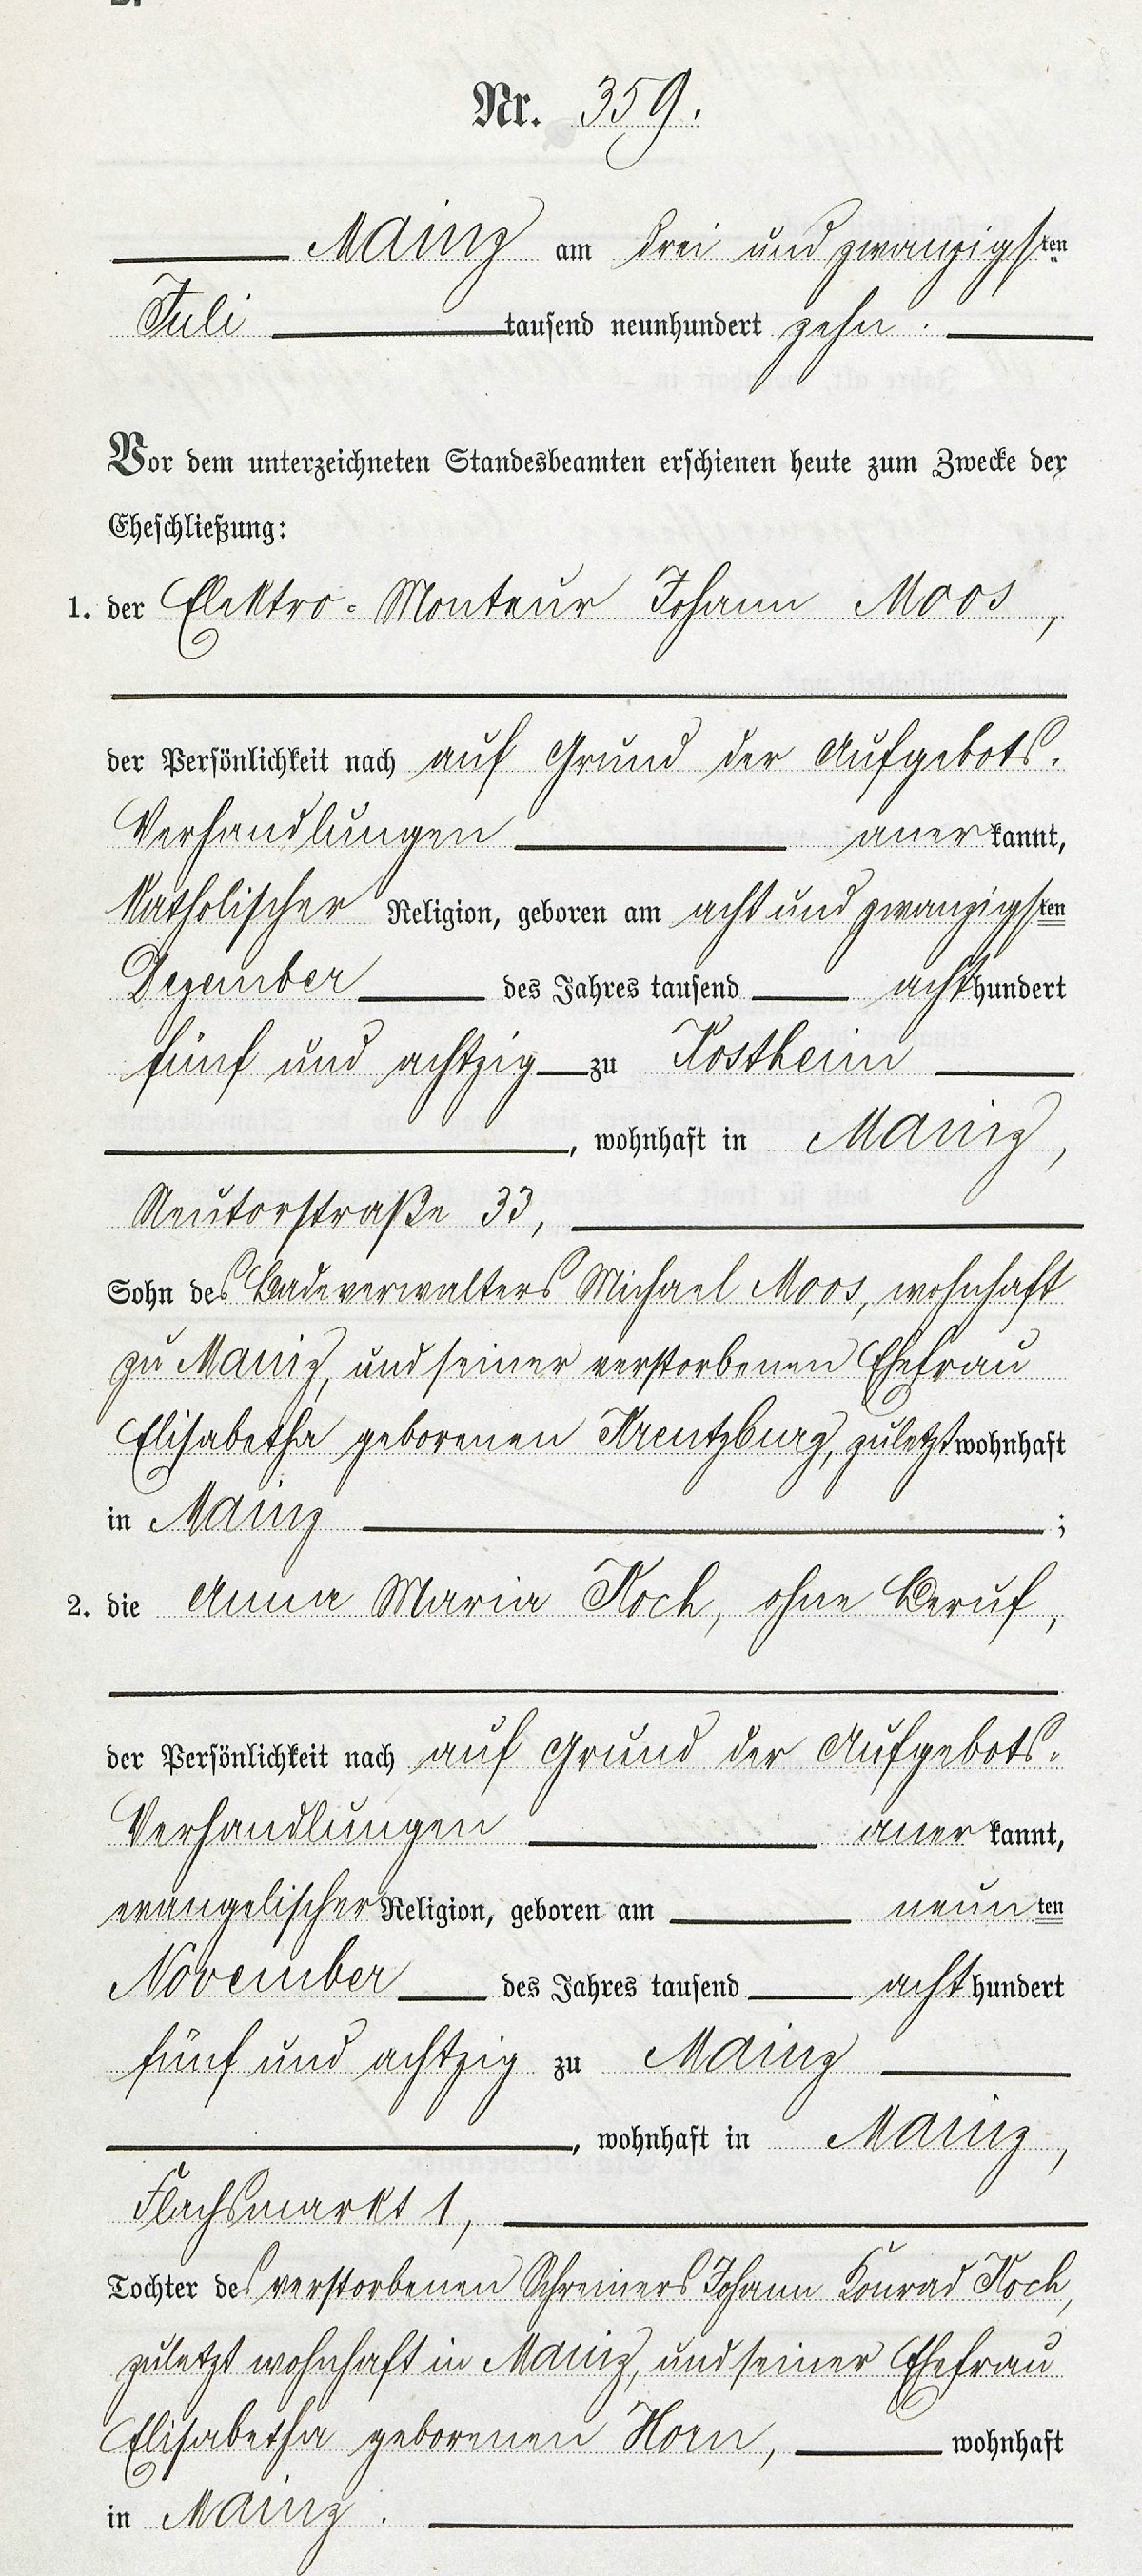 Nr. 359.
Mainz am drei und zwanzigsten
Juli tausend neunhundert zehn.
Vor dem unterzeichneten Standesbeamten erschienen heute zum Zwecke der
Eheschließung:
1. der Elektro-Monteur Johann Moos,
der Persönlichkeit nach auf Grund der Aufgebots-
Verhandlungen anerkannt,
katholischer Religion, geboren am acht und zwanzigsten
Dezember des Jahres tausend achthundert
fünf und achtzig zu Kostheim
, wohnhaft in Mainz,
Neutorstraße 33,
Sohn des Badeverwalters Michael Moos, wohnhaft
zu Mainz, und seiner verstorbenen Ehefrau
Elisabetha geborenen Kreutzburg, zuletzt wohnhaft
in Mainz ;
2. die Anna Maria Koch, ohne Beruf,
der Persönlichkeit nach auf Grund der Aufgebots-
Verhandlungen anerkannt,
evangelischer Religion, geboren am neunten
November des Jahres tausend achthundert
fünf und achtzig zu Mainz
, wohnhaft in Mainz,
Flachsmarkt 1,
Tochter des verstorbenen Schreiners Johann Konrad Koch,
zuletzt wohnhaft in Mainz, und seiner Ehefrau
Elisabetha geborenen Horn, wohnhaft
in Mainz.